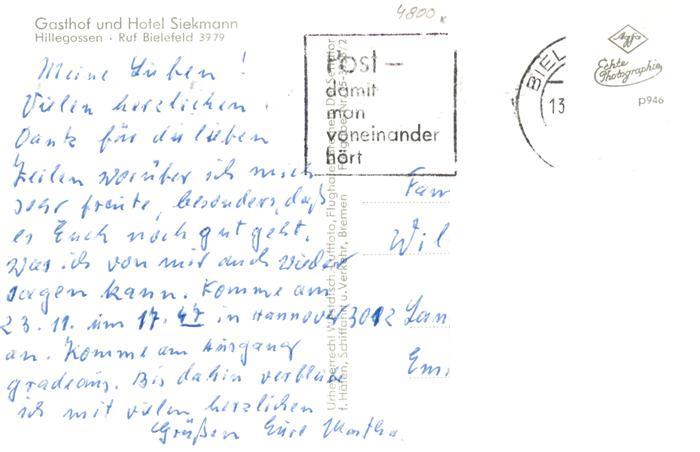 Gasthof und Hotel Siekmann
Hillegossen · Ruf Bielefeld 3979
Meine Lieben!
Vielen herzlichen
Dank für die lieben
Zeilen worüber ich mich
sehr freute, besonders, daß
es Euch noch gut geht,
was ich von mir auch wieder
sagen kann. Komme am
23.11. um 17.47 in Hannover
an. Komme am Ausgang
gradeaus. Bis dahin verbleibe
ich mit vielen herzlichen
Grüßen Eure Martha.
4800
Post –
damit
man
voneinander
hört
BIEL
13
Agfa
Echte
Photographie
p946
Fam
Wil
3012 Lan
Urheberrecht Luftfoto, Flughafen Bremen, Der Senator
f. Häfen, Schiffahrt u. Verkehr, Bremen